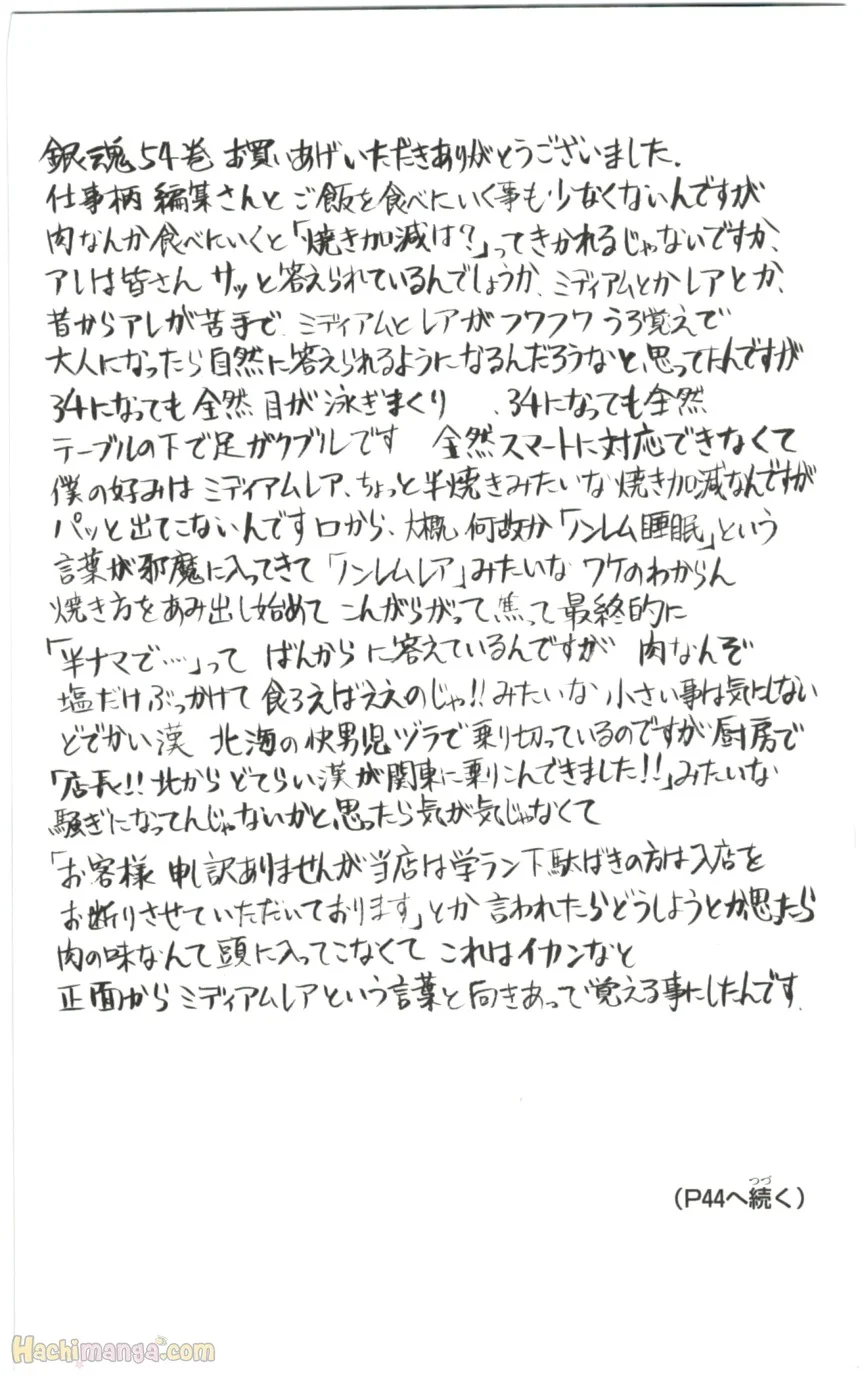 銀魂54巻 お買いあげいただきありがとうございました.
仕事柄 編集さんと ご飯を食べにいく事も少なくないんですが
肉なんか食べにいくと「焼き加減は？」ってきかれるじゃないですか、
アレは皆さん サッと答えられているんでしょうか、ミディアムとかレアとか、
昔からアレが苦手で、ミディアムとレアがフワフワうろ覚えで
大人になったら自然に答えられるようになるんだろうなと、思ってたんですが
34になっても全然目が泳ぎまくり 、34になっても全然
テーブルの下で足がクブルです 全然スマートに対応できなくて
僕の好みはミディアムレア、ちょっと半焼きみたいな焼き加減なんですが
パッと出てこないんです口から、大概何故か「ノンレム睡眠」という
言葉が邪魔に入ってきて「ノンレムレア」みたいなワケのわからん
焼き方をあみ出し始めて こんがらがって、焦って最終的に
「半ナマで…」って ばんからに答えているんですが 肉なんぞ
塩だけぶっかけて食ろえばええのじゃ!!みたいな 小さい事は気にしない
どでかい漢 北海の快男児ヅラで乗り切っているのですが厨房で
「店長!!北からどてらい漢が関東に乗りこんできました!!」みたいな
騒ぎになってんじゃないかと、思ったら気が気じゃなくて
「お客様 申し訳ありませんが当店は学ラン下駄ばきの方は入店を
お断りさせていただいております」とか言われたらどうしようとか思ったら
肉の味なんて頭に入ってこなくて これはイカンなと
正面からミディアムレアという言葉と向きあって覚える事にしたんです.
つづ
(P44へ続く)
Hachimanga.com